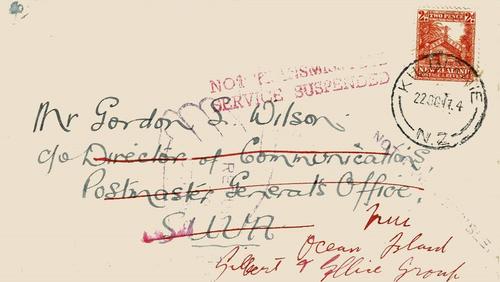 2D TWO PENCE 2D
NEW ZEALAND
POSTAGE & REVENUE
NOT TRANSMITTED
SERVICE SUSPENDED
22 OC 41
N Z
Mr Gordon S. Wilson.
c/o Director of Communications,
Postmaster General's Office,
SUVA
Ocean Island
Gilbert & Ellice Group